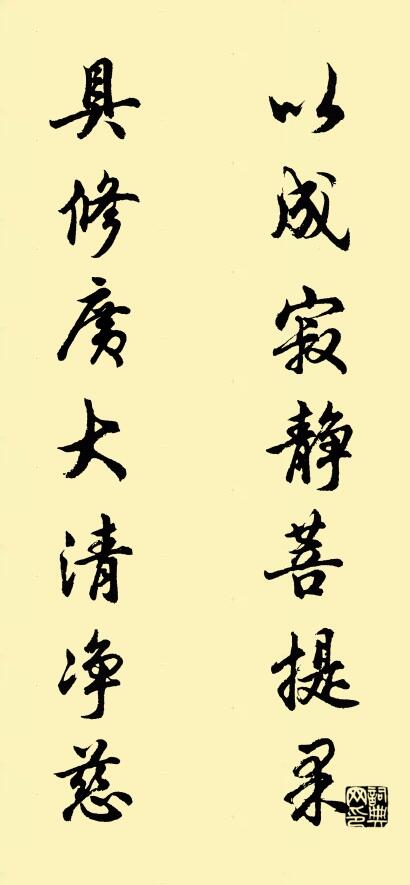 以成寂静菩提果
具修廣大清净慈
詞典网印